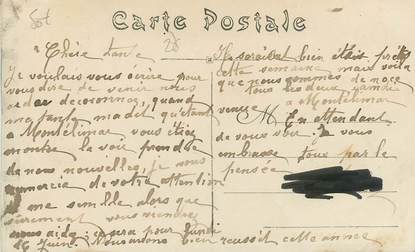 Carte Postale
28
Chère tante
Je voulais vous écrire pour
vous dire de venir nous
aider decoconner, quand
ma tante m'a dit qu'étant
à Montélimar vous étiez
montée la voir prendre
de nos nouvelles, je vous
remercie de votre attention
il me semble alors que
surement vous viendrez
nous aider, ce sera pour lundi
16 Juin. Nous avons bien reussit cette année
bien
cette semaine mais voila
que nous sommes de noce
tous les deux samedi
à Montélimar
venue
M. En attendant
de vous voir je vous
embrasse tous par la
pensée